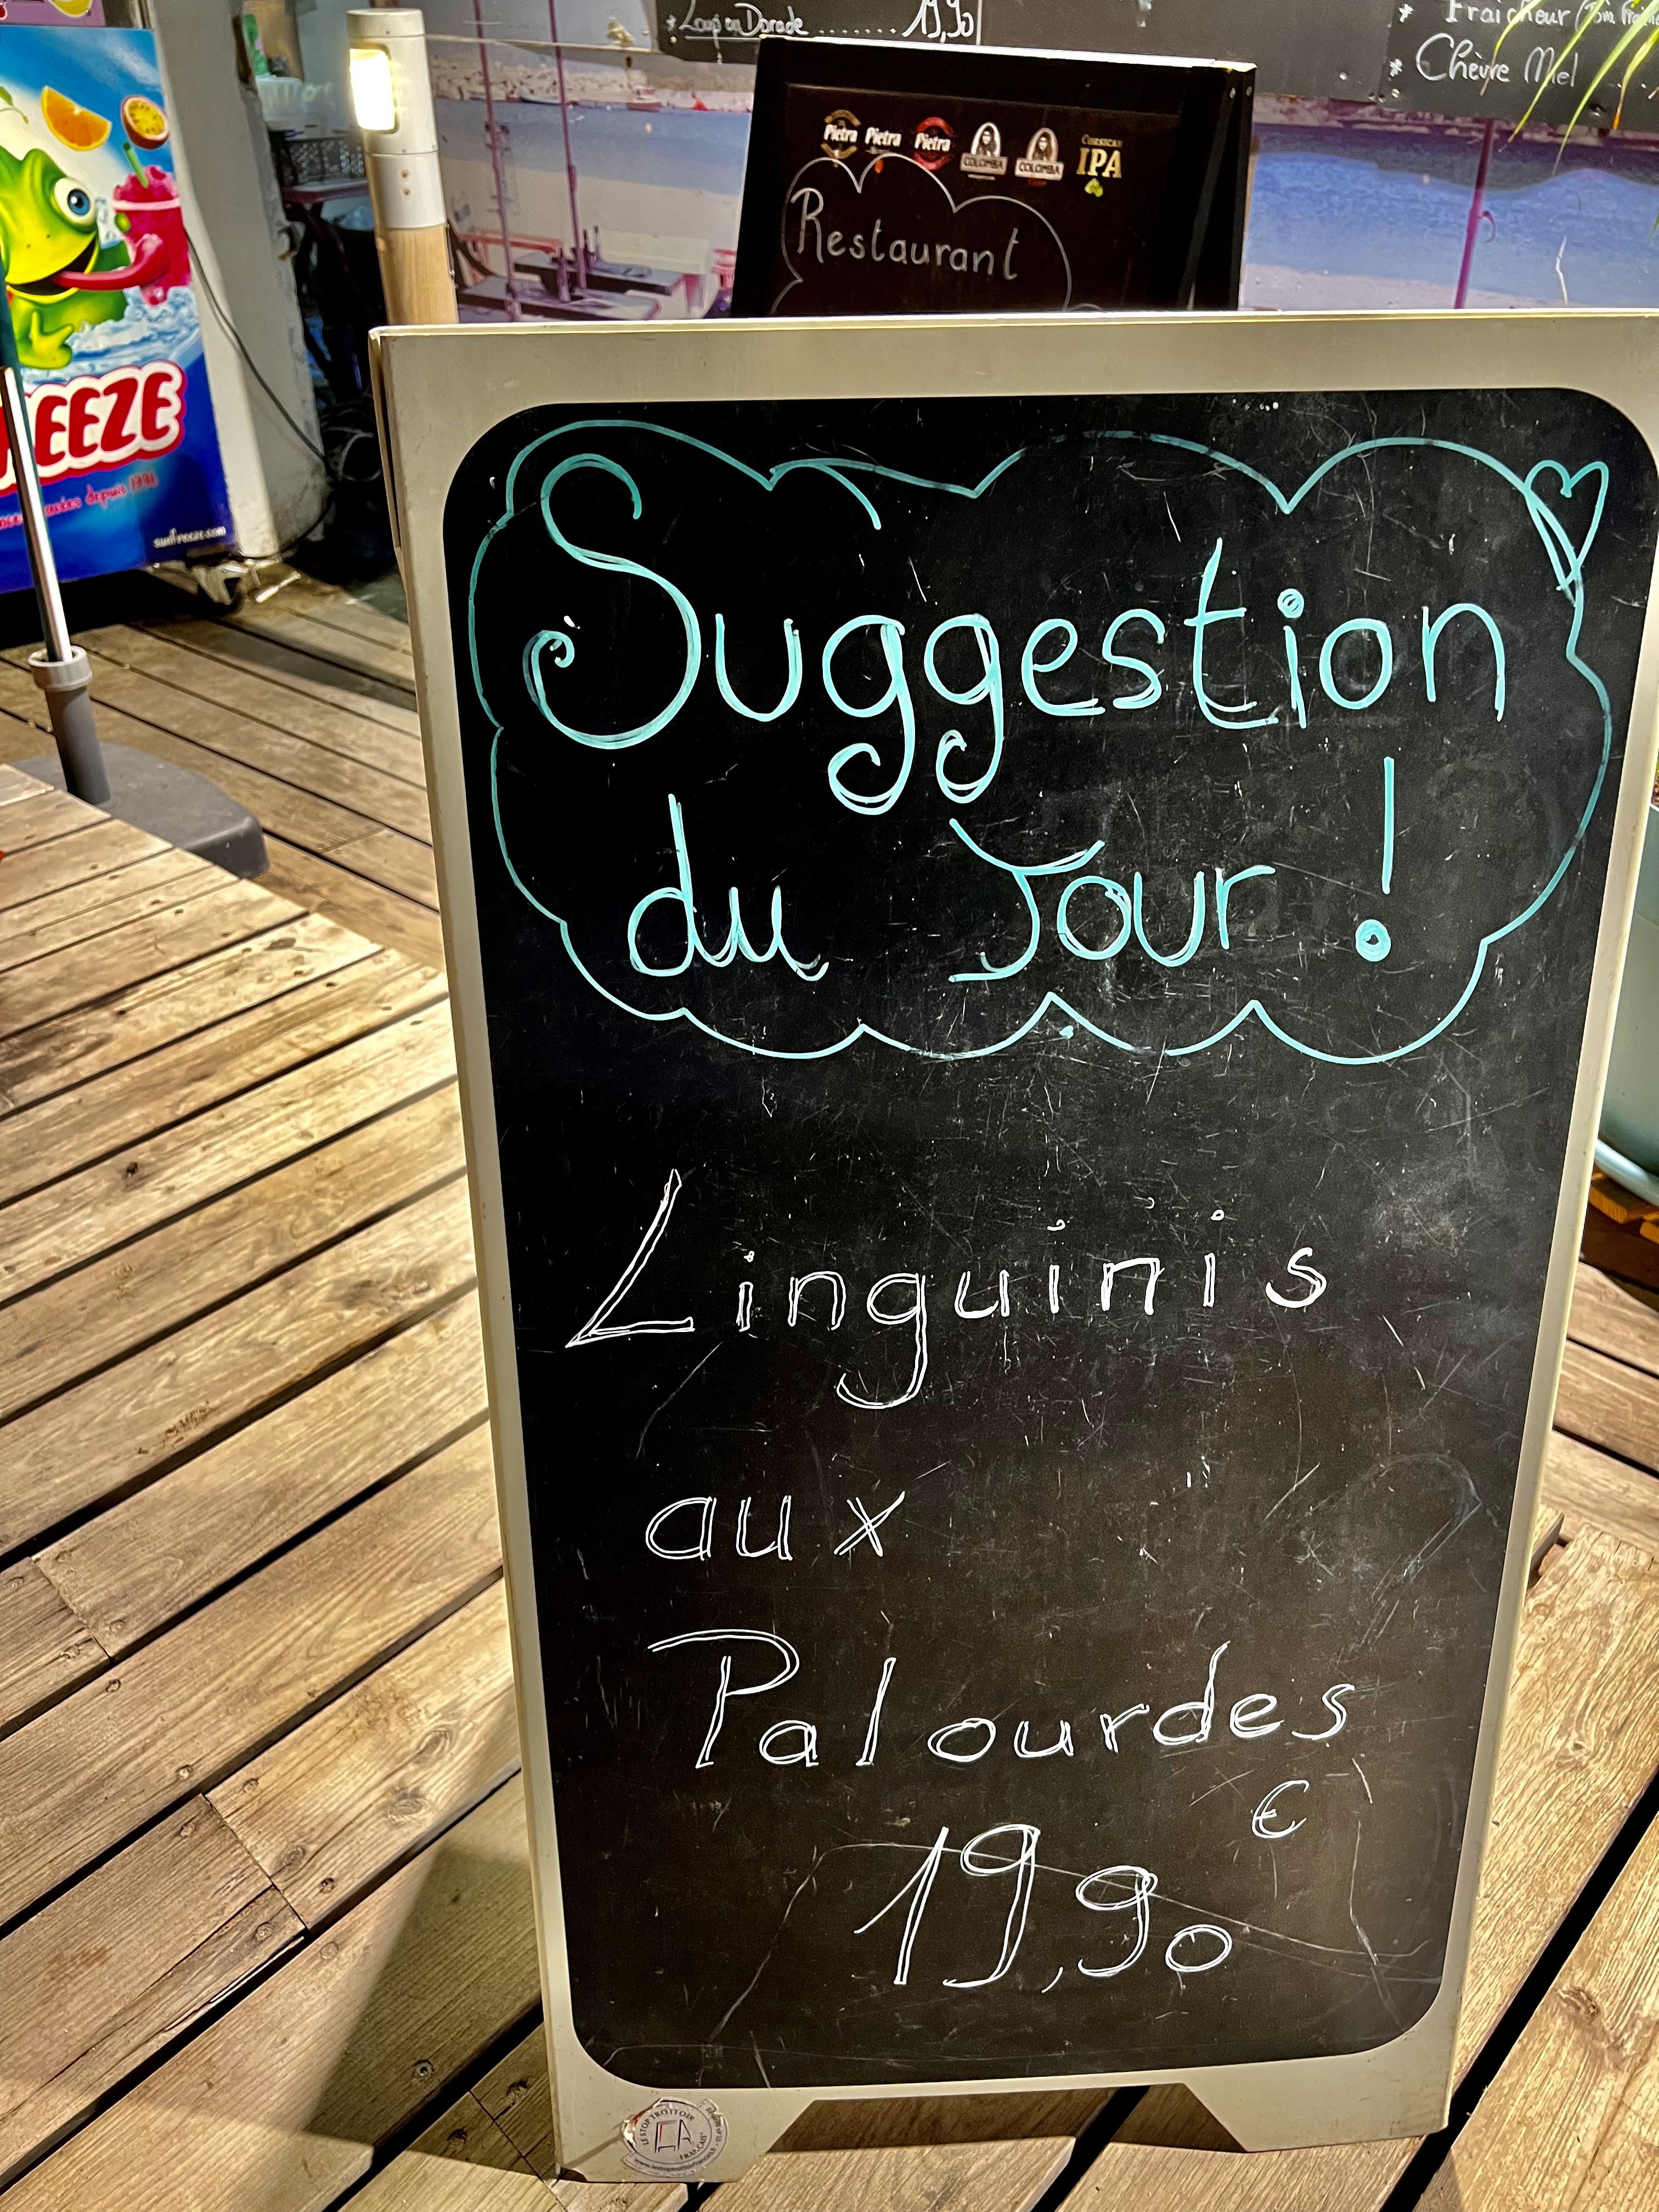 * Loup ou Dorade ........ 19,90
* Fraîcheur
* Chèvre Miel ...
Pietra Pietra Pietra COLOMBA COLOMBA CORSICAN IPA
Restaurant
EEZE
depuis 1991
sunfreeze.com
Suggestion
du Jour !
Linguinis
aux
Palourdes
€
19,90
LE STOP TROTTOIR